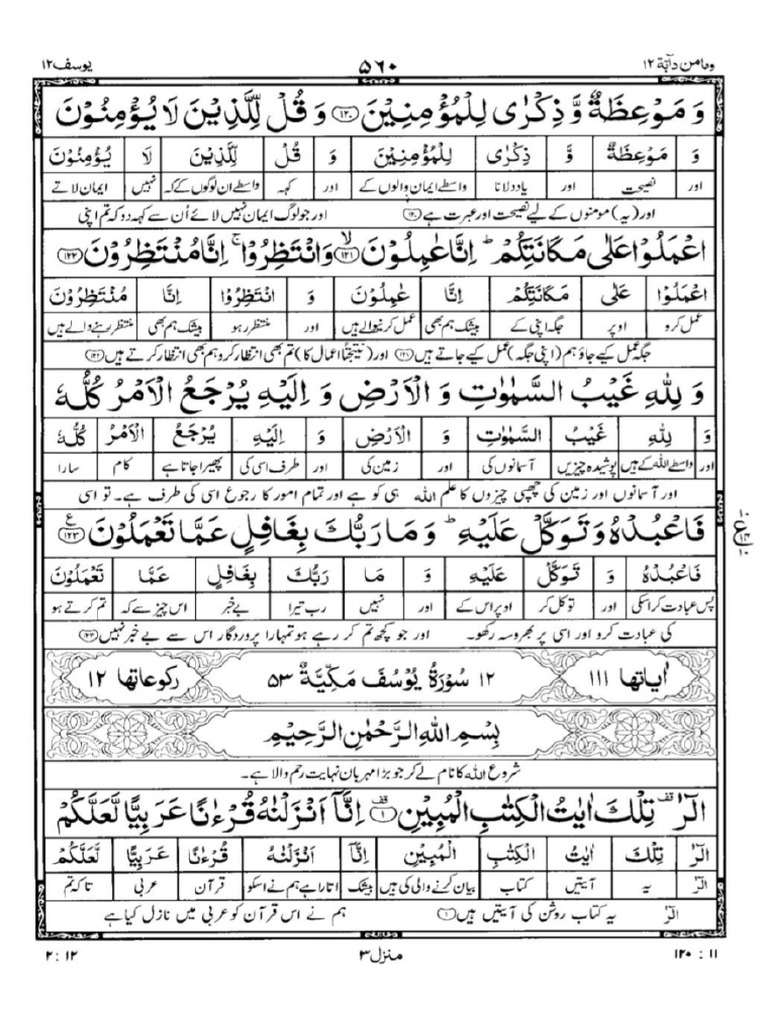 وما من دآبة ١٢ ٥٦٠ يوسف ١٢
وَ مَوْعِظَةٌ وَّ ذِكْرٰى لِلْمُؤْمِنِيْنَ ﴿١٢٠﴾ وَ قُلْ لِّلَّذِيْنَ لَا يُؤْمِنُوْنَ
وَ مَوْعِظَةٌ وَّ ذِكْرٰى لِلْمُؤْمِنِيْنَ وَ قُلْ لِّلَّذِيْنَ لَا يُؤْمِنُوْنَ
اور نصیحت اور یاد دلانا واسطے ایمان والوں کے اور کہہ واسطے ان لوگوں کے کہ نہیں ایمان لاتے
اور (یہ) مومنوں کے لیے نصیحت اور عبرت ہے ﴿١٢٠﴾ اور جو لوگ ایمان نہیں لائے اُن سے کہہ دو کہ تم اپنی
اعْمَلُوْا عَلٰى مَكَانَتِكُمْ ؕ اِنَّا عٰمِلُوْنَ ﴿١٢١﴾ۙ وَانْتَظِرُوْا ۚ اِنَّا مُنْتَظِرُوْنَ ﴿١٢٢﴾
اعْمَلُوْا عَلٰى مَكَانَتِكُمْ اِنَّا عٰمِلُوْنَ وَ انْتَظِرُوْا اِنَّا مُنْتَظِرُوْنَ
عمل کرو اوپر جگہ اپنی کے بیشک ہم بھی عمل کرنیوالے ہیں اور منتظر رہو بیشک ہم بھی منتظر رہنے والے ہیں
جگہ عمل کیے جاؤ ہم (اپنی جگہ) عمل کیے جاتے ہیں ﴿١٢١﴾ اور (نتیجۂ اعمال کا) تم بھی انتظار کرو ہم بھی انتظار کرتے ہیں ﴿١٢٢﴾
وَ لِلّٰهِ غَيْبُ السَّمٰوٰتِ وَ الْاَرْضِ وَ اِلَيْهِ يُرْجَعُ الْاَمْرُ كُلُّهٗ
وَ لِلّٰهِ غَيْبُ السَّمٰوٰتِ وَ الْاَرْضِ وَ اِلَيْهِ يُرْجَعُ الْاَمْرُ كُلُّهٗ
اور واسطے اللہ کے ہیں پوشیدہ چیزیں آسمانوں کی اور زمین کی اور طرف اسی کی پھیرا جاتا ہے کام سارا
اور آسمانوں اور زمین کی چھپی چیزوں کا علم اللہ ہی کو ہے اور تمام امور کا رجوع اسی کی طرف ہے۔ تو اسی
فَاعْبُدْهُ وَ تَوَكَّلْ عَلَيْهِ ؕ وَ مَا رَبُّكَ بِغَافِلٍ عَمَّا تَعْمَلُوْنَ ﴿١٢٣﴾ ع
فَاعْبُدْهُ وَ تَوَكَّلْ عَلَيْهِ وَ مَا رَبُّكَ بِغَافِلٍ عَمَّا تَعْمَلُوْنَ
پس عبادت کر اسکی اور توکل کر اوپر اس کے اور نہیں رب تیرا بے خبر اس چیز سے کہ تم کرتے ہو
کی عبادت کرو اور اسی پر بھروسہ رکھو۔ اور جو کچھ تم کر رہے ہو تمہارا پروردگار اس سے بے خبر نہیں ﴿١٢٣﴾
اٰياتها ١١١ ١٢ سُوْرَةُ يُوْسُفَ مَكِّيَّةٌ ٥٣ ركوعاتها ١٢
بِسْمِ اللّٰهِ الرَّحْمٰنِ الرَّحِيْمِ
شروع اللہ کا نام لے کر جو بڑا مہربان نہایت رحم والا ہے۔
الٓرٰ ۫ تِلْكَ اٰيٰتُ الْكِتٰبِ الْمُبِيْنِ ﴿١﴾ اِنَّاۤ اَنْزَلْنٰهُ قُرْءٰنًا عَرَبِيًّا لَّعَلَّكُمْ
الٓرٰ تِلْكَ اٰيٰتُ الْكِتٰبِ الْمُبِيْنِ اِنَّاۤ اَنْزَلْنٰهُ قُرْءٰنًا عَرَبِيًّا لَّعَلَّكُمْ
الٓرٰ یہ آیتیں کتاب بیان کرنے والی کی ہیں بیشک اتارا ہے ہم نے اسکو قرآن عربی تا کہ تم
الٓرٰ یہ کتاب روشن کی آیتیں ہیں ﴿١﴾ ہم نے اس قرآن کو عربی میں نازل کیا ہے
١١ : ١٢٠ منزل ٣ ١٢ : ٢